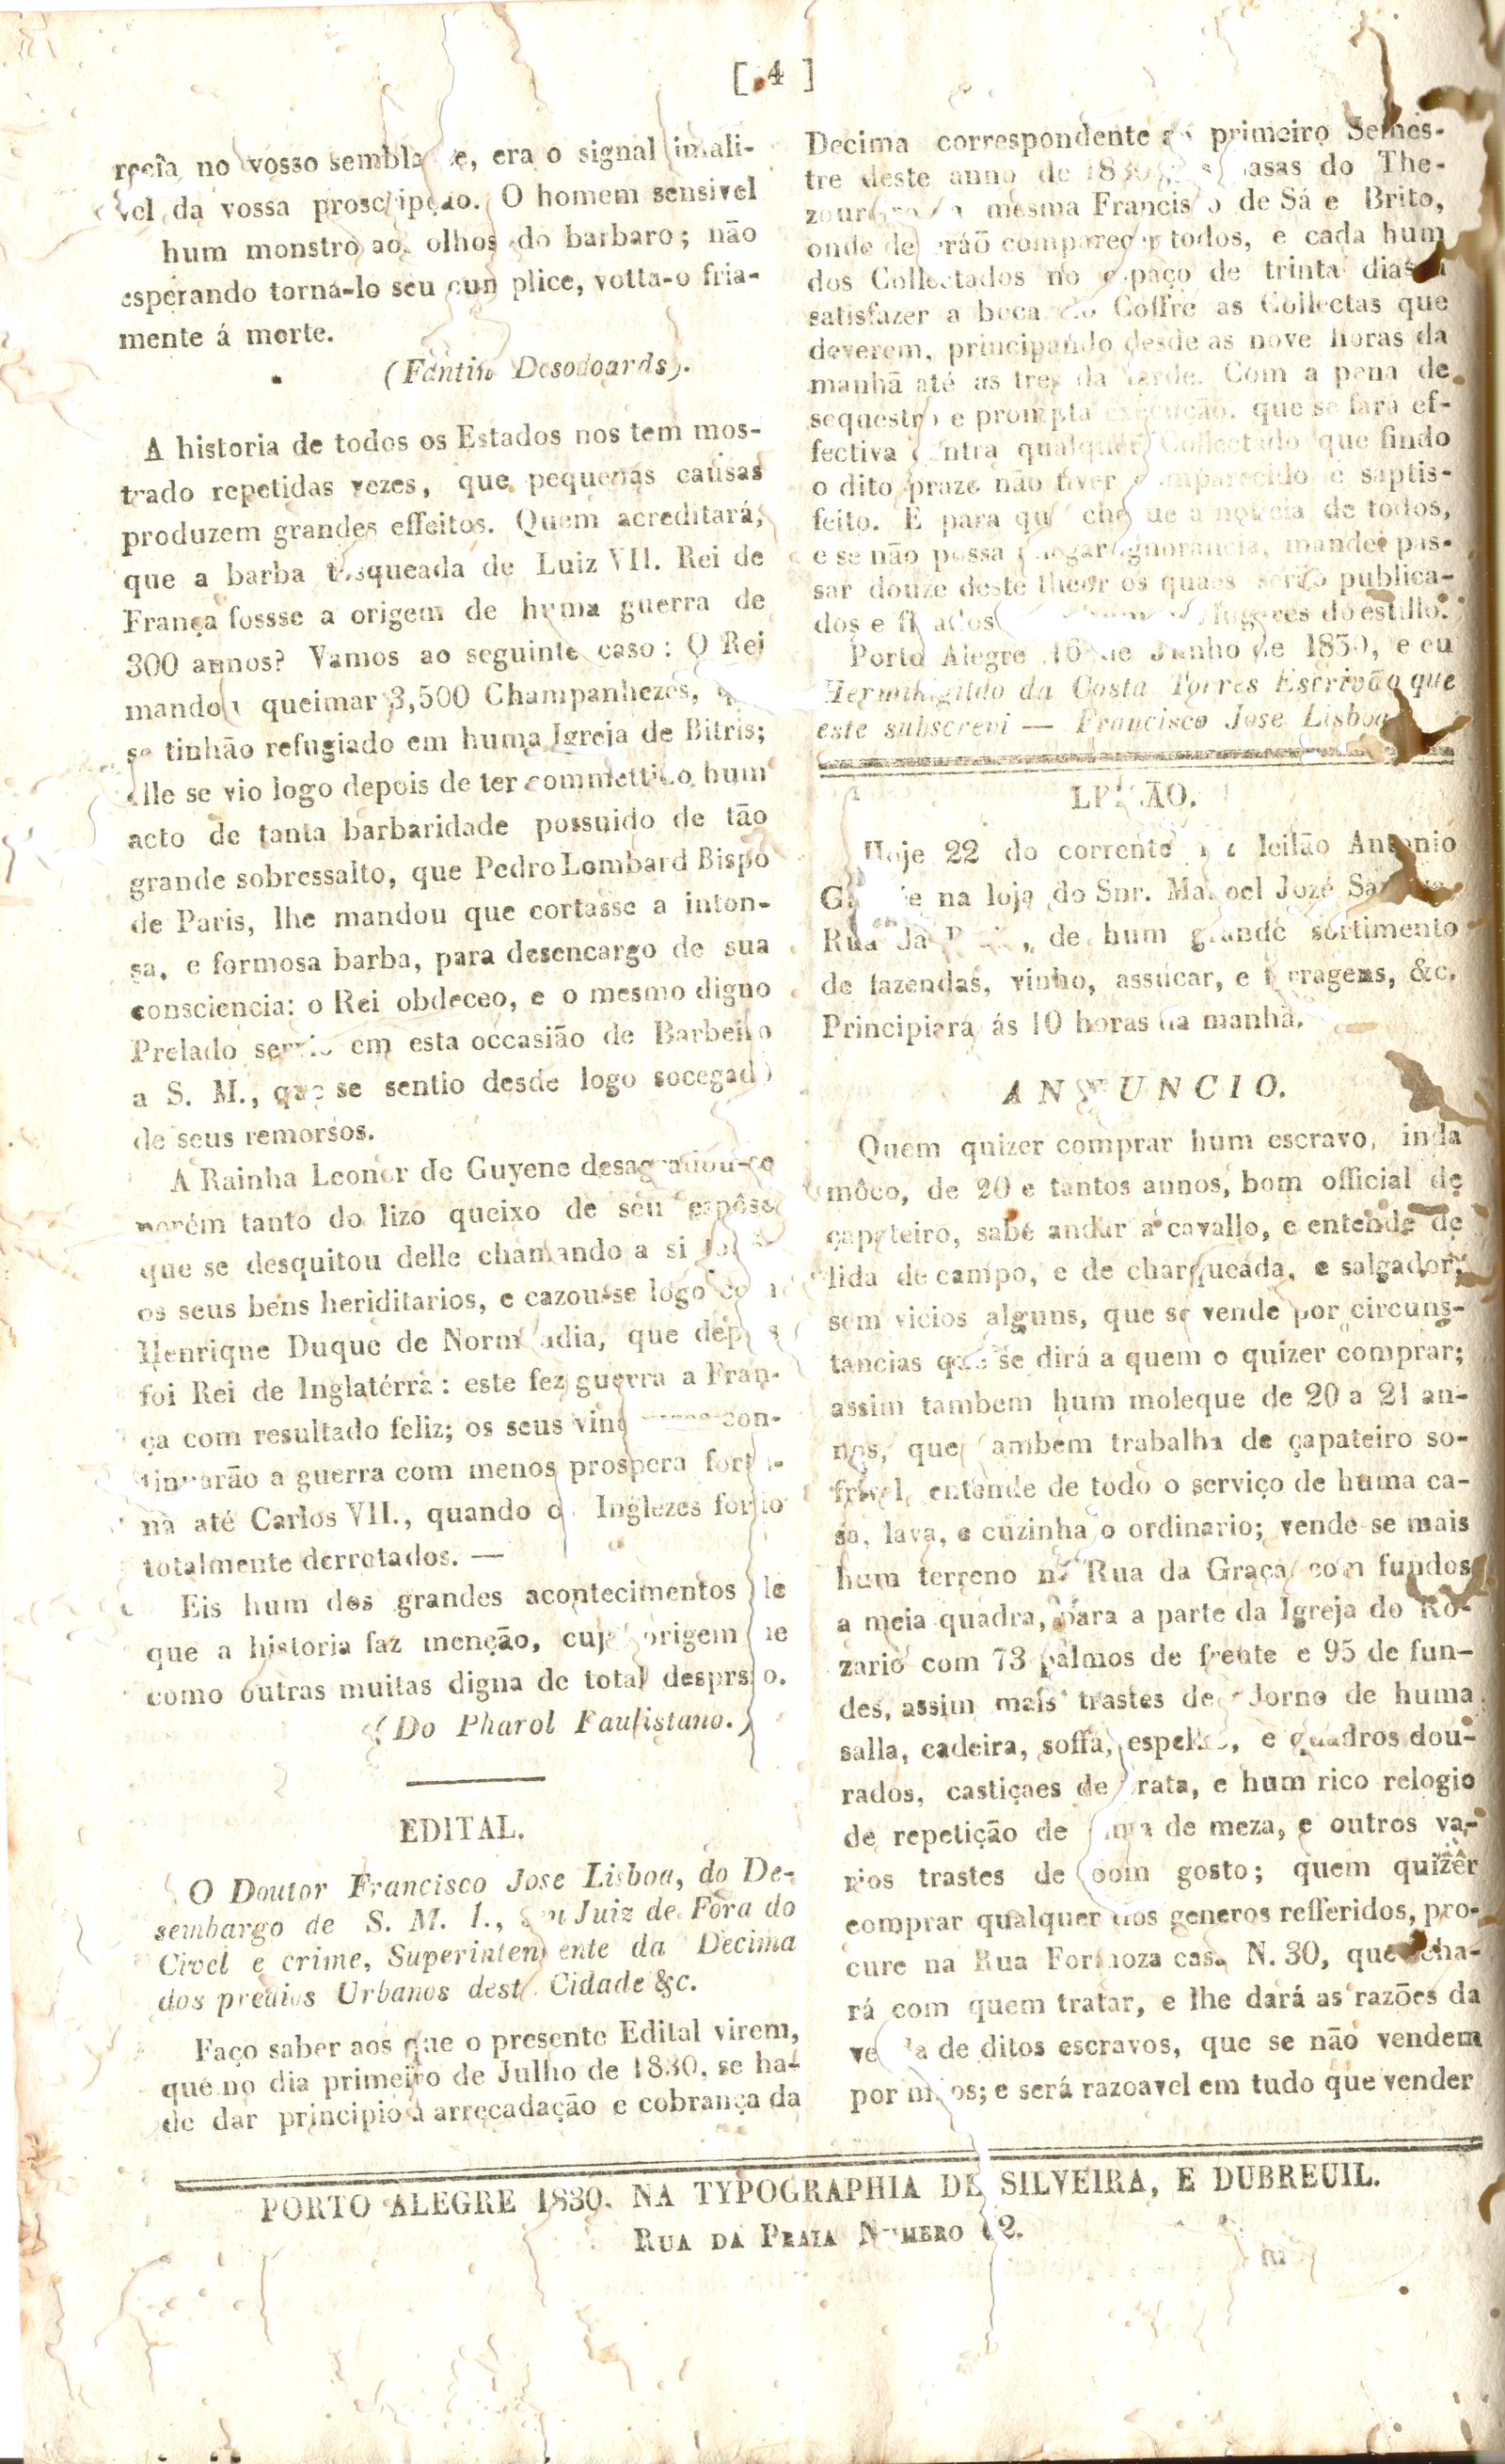 [ 4 ]
recia no vosso sembla e, era o signal
vel da vossa O homem sensivel
hum monstro aos olhos do barbaro; não
esperando torna-lo seu cum plice, votta-o fria-
mente á morte.
(Fantin Desodoards).
A historia de todos os Estados nos tem mos-
trado repetidas vezes, que pequenas causas
produzem grandes effeitos. Quem acreditará,
que a barba tosqueada de Luiz VII. Rei de
França fossse a origem de huma guerra de
300 annos? Vamos ao seguinte caso: O Rei
mandou queimar 3,500 Champanhezes,
se tinhão refugiado em huma Igreja de Bitris;
elle se vio logo depois de ter commettido hum
acto de tanta barbaridade possuido de tão
grande sobressalto, que Pedro Lombard Bispo
de Paris, lhe mandou que cortasse a inton-
sa, e formosa barba, para desencargo de sua
consciencia: o Rei obdeceo, e o mesmo digno
Prelado servio em esta occasião de Barbeiro
a S. M., que se sentio desde logo socegado
de seus remorsos.
A Rainha Leonor de Guyene desagradou-se
porém tanto do lizo queixo de seu espôso
que se desquitou delle chamando a si
os seus bens heriditarios, e cazou-se logo com
Henrique Duque de Normandia, que depois
foi Rei de Inglatérra: este fez guerra a Fran-
ça com resultado feliz; os seus con-
tinuarão a guerra com menos prospera fortu-
na até Carlos VII., quando os Inglezes forão
totalmente derrotados. —
Eis hum dos grandes acontecimentos de
que a historia faz menção, cuja origem he
como outras muitas digna de total despreso.
(Do Pharol Paulistano.)
EDITAL.
O Doutor Francisco Jose Lisboa, do De-
sembargo de S. M. I., seu Juiz de Fóra do
Civel e crime, Superintendente da Decima
dos predios Urbanos desta Cidade &c.
Faço saber aos que o presente Edital virem,
que no dia primeiro de Julho de 1830, se ha-
de dar principio á arrecadação e cobrança da
Decima correspondente ao primeiro Semes-
tre deste anno de 1830 casas do The-
zoureiro da mesma Francisco de Sá e Brito,
onde deveráõ comparecer todos, e cada hum
dos Collectados no espaço de trinta dias a
satisfazer a boca do Coffre as Collectas que
deverem, principando desde as nove horas da
manhã até as tres da tarde. Com a pena de
sequestro e prompta execução. que se fará ef-
fectiva contra qualquer Collectado que findo
o dito prazo não tiver comparecido e saptis-
feito. E para que chegue a noticia de todos,
e se não possa alegar ignorancia, mandei pas-
sar douze deste theor os quaes serão publica-
dos e fixados lugeres do estillo.
Porto Alegre 16 de Junho de 1830, e eu
Hermenigildo da Costa Torres Escrivão que
este subscrevi — Francisco Jose Lisboa
LEILÃO.
Hoje 22 do corrente faz leilão Antonio
na loja do Snr. Manoel Jozé
Rua da de hum grande sortimento
de fazendas, vinho, assucar, e ferragens, &c.
Principiará ás 10 horas da manhã.
ANNUNCIO.
Quem quizer comprar hum escravo, inda
môco, de 20 e tantos annos, bom official de
çapateiro, sabe andar a cavallo, e entende de
lida de campo, e de charqueada, e salgador,
sem vicios alguns, que se vende por circuns-
tancias que se dirá a quem o quizer comprar;
assim tambem hum moleque de 20 a 21 an-
nos, que tambem trabalha de çapateiro so-
frivel, entende de todo o serviço de huma ca-
sa, lava, e cuzinha o ordinario; vende-se mais
hum terreno na Rua da Graça com fundos
a meia quadra, para a parte da Igreja do Ro-
zario com 73 palmos de frente e 95 de fun-
des, assim mais trastes de adorno de huma
salla, cadeira, soffá, espelho, e quadros dou-
rados, castiçaes de prata, e hum rico relogio
de repetição de sima de meza, e outros va-
rios trastes de bom gosto; quem quizer
comprar qualquer dos generos refferidos, pro-
cure na Rua Formoza casa N. 30, que acha-
rá com quem tratar, e lhe dará as razões da
venda de ditos escravos, que se não vendem
por máos; e será razoavel em tudo que vender
PORTO ALEGRE 1830. NA TYPOGRAPHIA DE SILVEIRA, E DUBREUIL.
RUA DA PRAIA NUMERO 2.